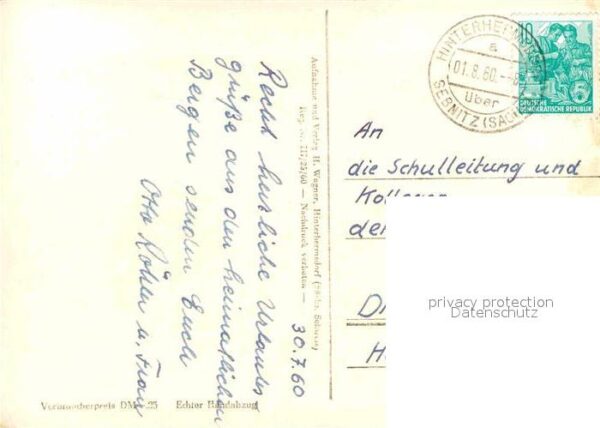 Recht herzliche Urlaubs
grüße aus den heimatlichen
Bergen senden Euch
Otto u. Frau
30.7.60
Aufnahme und Verlag H. Wagner, Hinterhermsdorf (Sächs. Schweiz)
Reg.-Nr. 117/25/60 — Nachdruck verboten —
Verbraucherpreis DM -.25 Echter Handabzug
HINTERHERMSD
a
01.8.60.-8
über
SEBNITZ (SACH
10
5
DEUTSCHE
DEMOKRATISCHE REPUBLIK
An
die Schulleitung und
de
D
H
privacy protection
Datenschutz